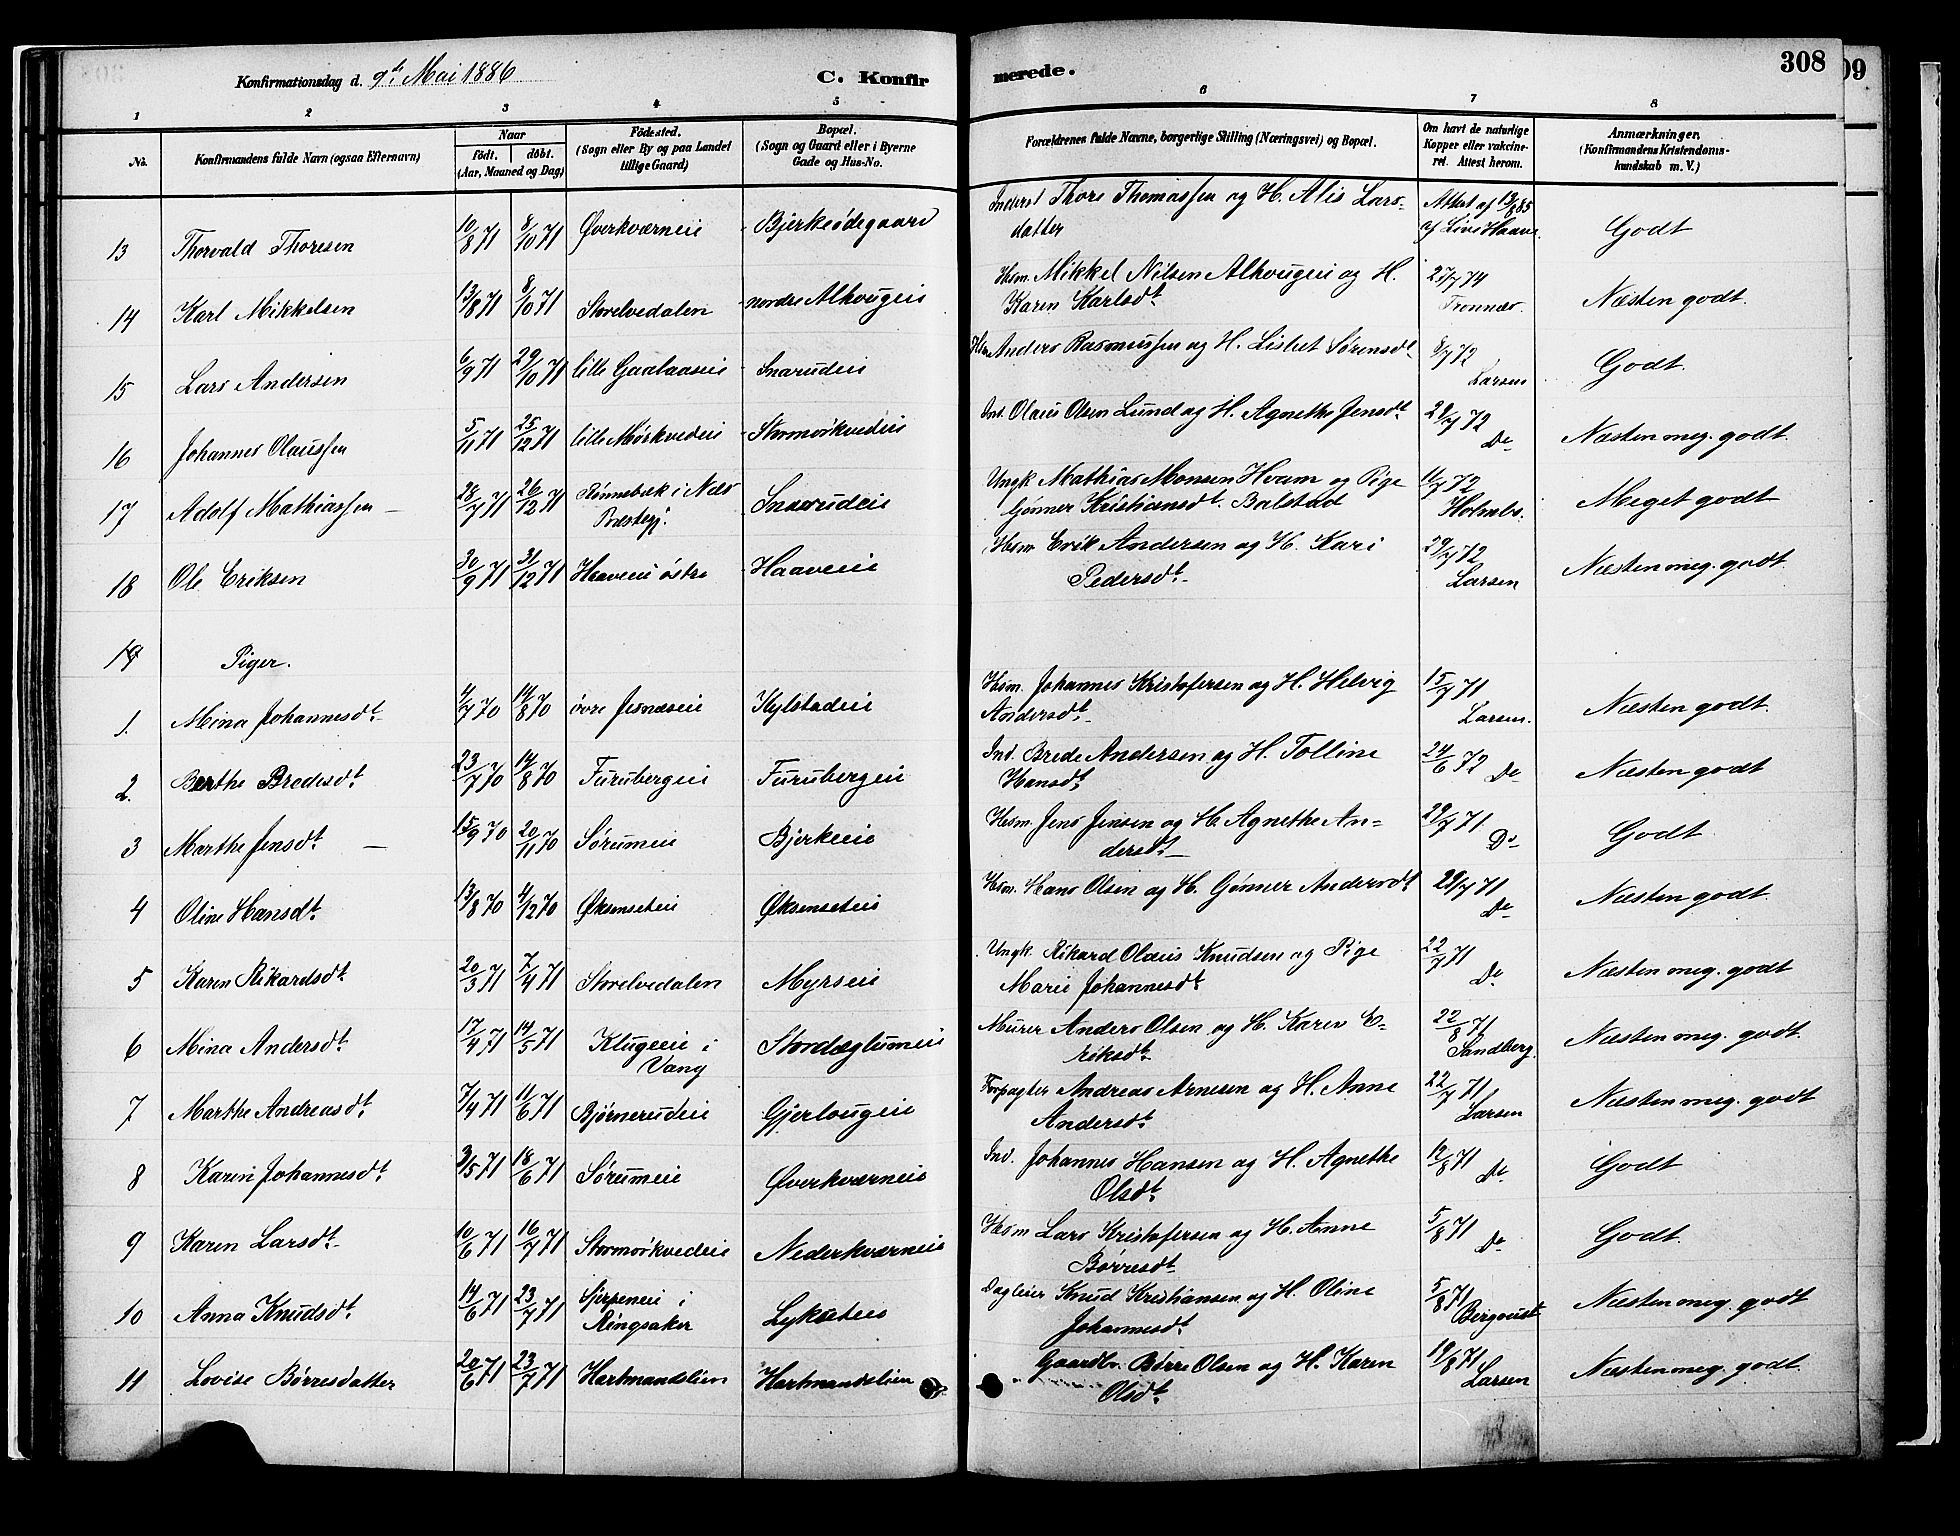 308
Konfirmationsdag d. 9de Mai 1886 C. Konfirmerede.
1 2 3 4 5 6 7 8
No. Konfirmandens fulde Navn (ogsaa Efternavn) Naar Födt. döbt. (Aar, Maaned og Dag) Födested. (Sogn eller By og paa Landet tillige Gaard) Bopæl. (Sogn og Gaard eller i Byerne Gade og Hus-No. Forældrenes fulde Navne, borgerlige Stilling (Næringsvei) og Bopæl. Om havt de naturlige Kopper eller vakcineret. Attest herom. Anmærkninger. (Konfirmandens Kristendomskundskab m. V.)
13 Thorvald Thoresen 10/8 71 8/10 71 Øverkværneie Bjerkeødegaard Inderst Thore Thomassen og H. Alis Larsdatter Attest af 13/8 85 Godt
14 Karl Mikkelsen 13/8 71 8/10 71 Storelvedalen nordre Alhougeie Hsm. Mikkel Nilsen Alhougeie og H. Karen Karlsdt. 27/7 74 Næsten godt.
15 Lars Andersen 6/9 71 29/10 71 lille Gaalaaseie Snarudeie Hsm Anders Rasmussen og H. Lisbet Sørensdt. 8/7 72 Larsen Godt.
16 Johannes Olaussen 5/11 71 25/12 71 lille Mørkvedeie Stormørkvedeie Ind. Olaus Olsen Lund og H. Agnethe Jensdt. 29/7 72 Do Næsten meg. godt.
17 Adolf Mathiassen 28/7 71 26/12 71 Rønnebæk i Næs Præstegj. Snarudeie Ungk. Mathias Monsen Hvam og Pige Gønner Kristiansdt. Balstad 11/7 72 Holmbo. Meget godt
18 Ole Eriksen 30/9 71 31/12 71 Haaveeie østre Haaveeie Hsm Erik Andersen og H. Kari Pedersdt. 29/7 72 Larsen Næsten meg. godt
19 Piger.
1. Mina Johannesdt. 4/7 70 14/8 70 øvre Jesnæseie Kylstadeie Hsm. Johannes Kristofersen og H. Helvig Andersdt. 15/7 71 Larsen. Næsten godt.
2. Berthe Bredesdt. 23/7 70 14/8 70 Furubergeie Furubergeie Ind. Brede Andersen og H. Tolline Hansdt. 24/6 72 Do Næsten godt
3 Marthe Jensdt. 15/9 70 20/11 70 Sørumeie Bjerkeeie Hsm. Jens Jensen og H. Agnethe Andersdt. 29/7 71 Do Godt
4 Oline Hansdt. 13/8 70 4/12 70 Øksenseteie Øksenseteie Hsm. Hans Olsen og H. Gønner Andersdt 29/7 71 Do Næsten godt
5 Karen Rikardsdt. 20/3 71 7/4 71 Storelvedalen Myrseie Ungk. Rikard Olaus Knudsen og Pige Marie Johannesdt. 22/7 71 Do Næsten meg. godt
6 Mina Andersdt. 17/4 71 14/5 71 Klugeeie i Vang Stordæglumeie Murer Anders Olsen og H. Karen Eriksdt. 22/8 71 Sandberg. Næsten meg. godt.
7 Marthe Andreasdt. 7/4 71 11/6 71 Bjørnerudeie Gjerlougeie Forpagter Andreas Arnesen og H. Anne Andersdt. 22/7 71 Larsen Næsten meg. godt
8 Karen Johannesdt. 3/5 71 18/6 71 Sørumeie Øverkværneie Ind. Johannes Hansen og H. Agnethe Olsdt. 19/8 71 Do Godt
9 Karen Larsdt. 10/6 71 16/7 71 Stormørkvedeie Nederkværneie Hsm Lars Kristofersen og H. Anne Børresdt. 5/8 71 Do Godt.
10 Anna Knudsdt. 14/6 71 23/7 71 Sjerpeneie i Ringsaker Lyksteteie Dagleier Knud Kristiansen og H. Oline Johannesdt. 5/8 71 Næsten meg. godt
11 Lovise Børresdatter 20/6 71 23/7 71 Hartmandslien Hartmandslien Gaardbr. Børre Olsen og H. Karen Olsdt. 19/8 71 Larsen Næsten meg. godt.